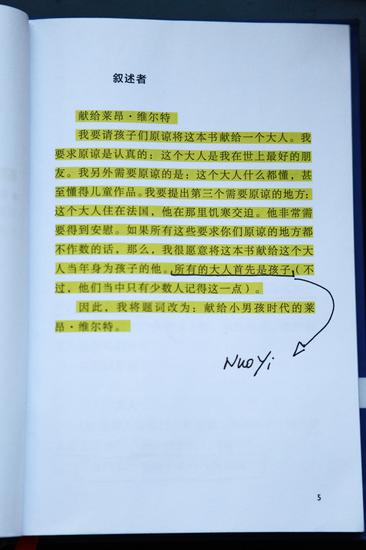 叙述者
献给莱昂·维尔特
我要请孩子们原谅将这本书献给一个大人。我
要求原谅是认真的：这个大人是我在世上最好的朋
友。我另外需要原谅的是；这个大人什么都懂，甚
至懂得儿童作品。我要提出第三个需要原谅的地方：
这个大人住在法国，他在那里饥寒交迫。他非常需
要得到安慰。如果所有这些要求你们原谅的地方都
不作数的话，那么，我很愿意将这本书献给这个大
人当年身为孩子的他。所有的大人首先是孩子（不
过，他们当中只有少数人记得这一点）。
因此，我将题词改为：献给小男孩时代的莱
昂·维尔特。
NuoYi
5